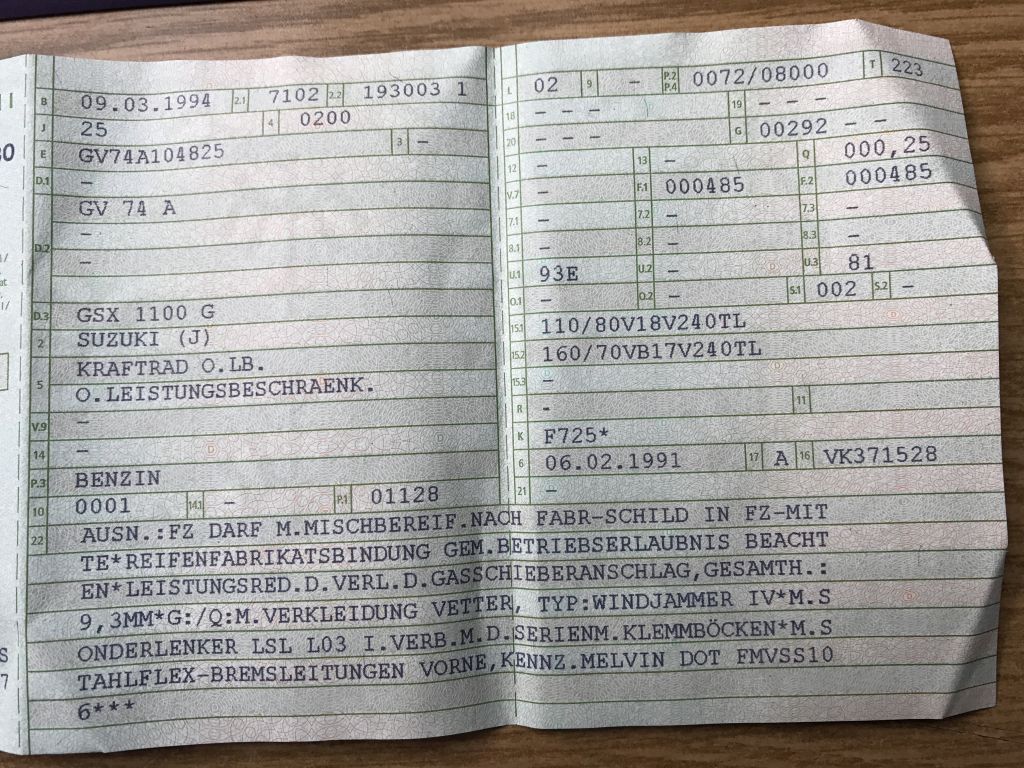 B 09.03.1994 2.1 7102 2.2 193003 1
J 25 4 0200
E GV74A104825 3 -
D.1 -
GV 74 A
-
D.2 -
D.3 GSX 1100 G
2 SUZUKI (J)
5 KRAFTRAD O.LB.
O.LEISTUNGSBESCHRAENK.
V.9 -
14 -
P.3 BENZIN
10 0001 14.1 - P.1 01128
L 02 9 - P.2 P.4 0072/08000 T 223
18 - - - 19 - - -
20 - - - G 00292 - -
12 - 13 - Q 000,25
V.7 - F.1 000485 F.2 000485
7.1 - 7.2 - 7.3 -
8.1 - 8.2 - 8.3 -
U.1 93E U.2 - U.3 81
O.1 - O.2 - S.1 002 S.2 -
15.1 110/80V18V240TL
15.2 160/70VB17V240TL
15.3 -
R - 11
K F725*
6 06.02.1991 17 A 16 VK371528
21 -
22 AUSN.:FZ DARF M.MISCHBEREIF.NACH FABR-SCHILD IN FZ-MIT
TE*REIFENFABRIKATSBINDUNG GEM.BETRIEBSERLAUBNIS BEACHT
EN*LEISTUNGSRED.D.VERL.D.GASSCHIEBERANSCHLAG,GESAMTH.:
9,3MM*G:/Q:M.VERKLEIDUNG VETTER, TYP:WINDJAMMER IV*M.S
ONDERLENKER LSL L03 I.VERB.M.D.SERIENM.KLEMMBÖCKEN*M.S
TAHLFLEX-BREMSLEITUNGEN VORNE,KENNZ.MELVIN DOT FMVSS10
6***